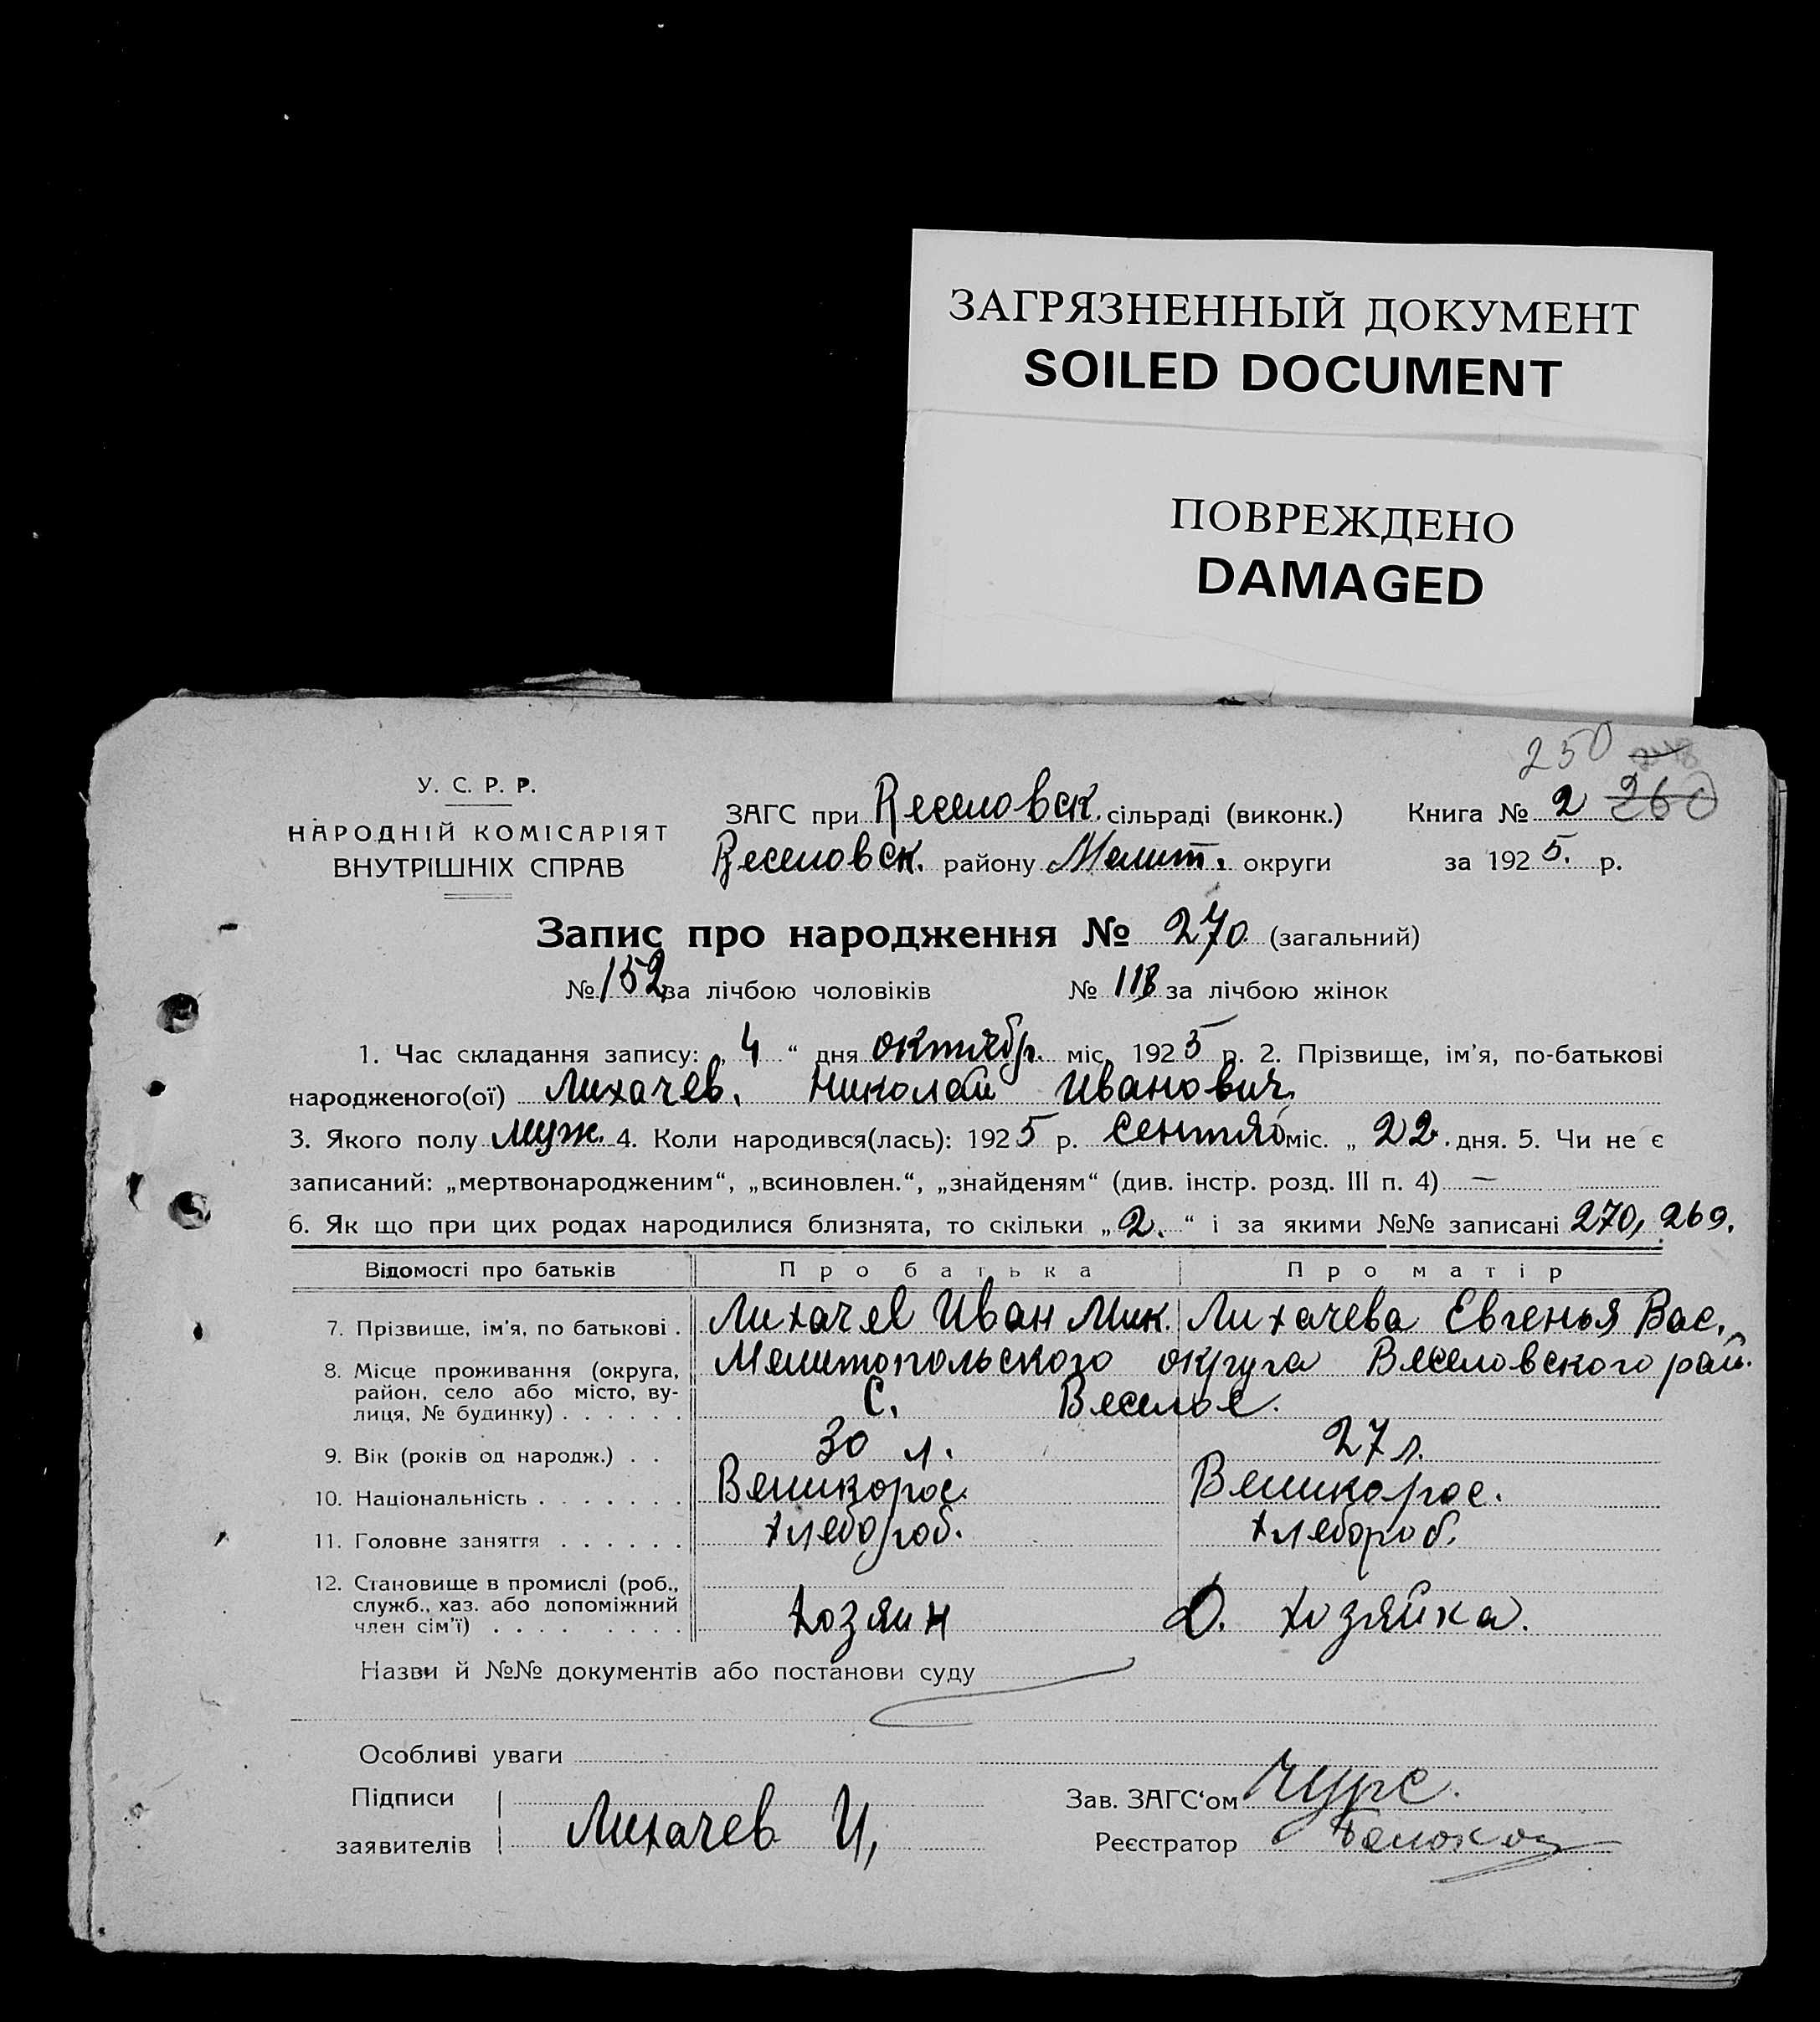 ЗАГРЯЗНЕННЫЙ ДОКУМЕНТ
SOILED DOCUMENT
ПОВРЕЖДЕНО
DAMAGED
250
У. С. Р. Р.
НАРОДНІЙ КОМІСАРІЯТ
ВНУТРІШНІХ СПРАВ
ЗАГС при Веселовск. сільраді (виконк.) Книга № 2 260
Веселовск. району Мелит. округи за 1925. р.
Запис про народження № 270 (загальний)
№ 152 за лічбою чоловіків № 118 за лічбою жінок
1. Час складання запису: „ 4 “ дня октябр. міс. 1925 р. 2. Прізвище, ім’я, по-батькові
народженого(ої) Лихачев. Николай Иванович.
3. Якого полу муж. 4. Коли народився(лась): 1925 р. Сентяб міс. „ 22. дня. 5. Чи не є
записаний: „мертвонародженим“, „всиновлен.“, „знайденям“ (див. інстр. розд. III п. 4) —
6. Як що при цих родах народилися близнята, то скільки „ 2. “ і за якими №№ записані 270, 269.
Відомості про батьків Про батька Про матір
7. Прізвище, ім’я, по батькові . Лихачев Иван Мик. Лихачева Евгенья Вас.
8. Місце проживання (округа, Мелитопольского округа Веселовского рай.
район, село або місто, ву-
лиця, № будинку) . . . . . . С. Веселое.
9. Вік (років од народж.) . . 30 л. 27 л.
10. Національність . . . . . . . Великорос. Великорос.
11. Головне заняття . . . . . . хлебороб. хлебороб.
12. Становище в промислі (роб.,
служб., хаз. або допоміжний
член сім’ї) . . . . . . . . хозяин Д. хозяйка.
Назви й №№ документів або постанови суду
Особливі уваги
Підписи
заявителів Лихачев И,
Зав. ЗАГС‘ом
Реєстратор